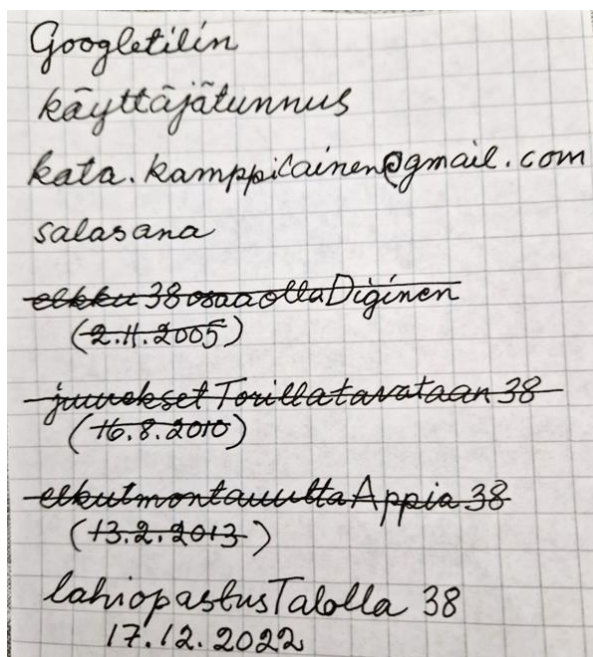 Googletilin
käyttäjätunnus
kata.kamppilainen@gmail.com
salasana
elkku 38 osaa olla Diginen
(2.11.2005)
juurekset Torillatavataan 38
(16.8.2010)
elkutmontauutta Appia 38
(13.2.2013)
lahiopastusTalolla 38
17.12.2022